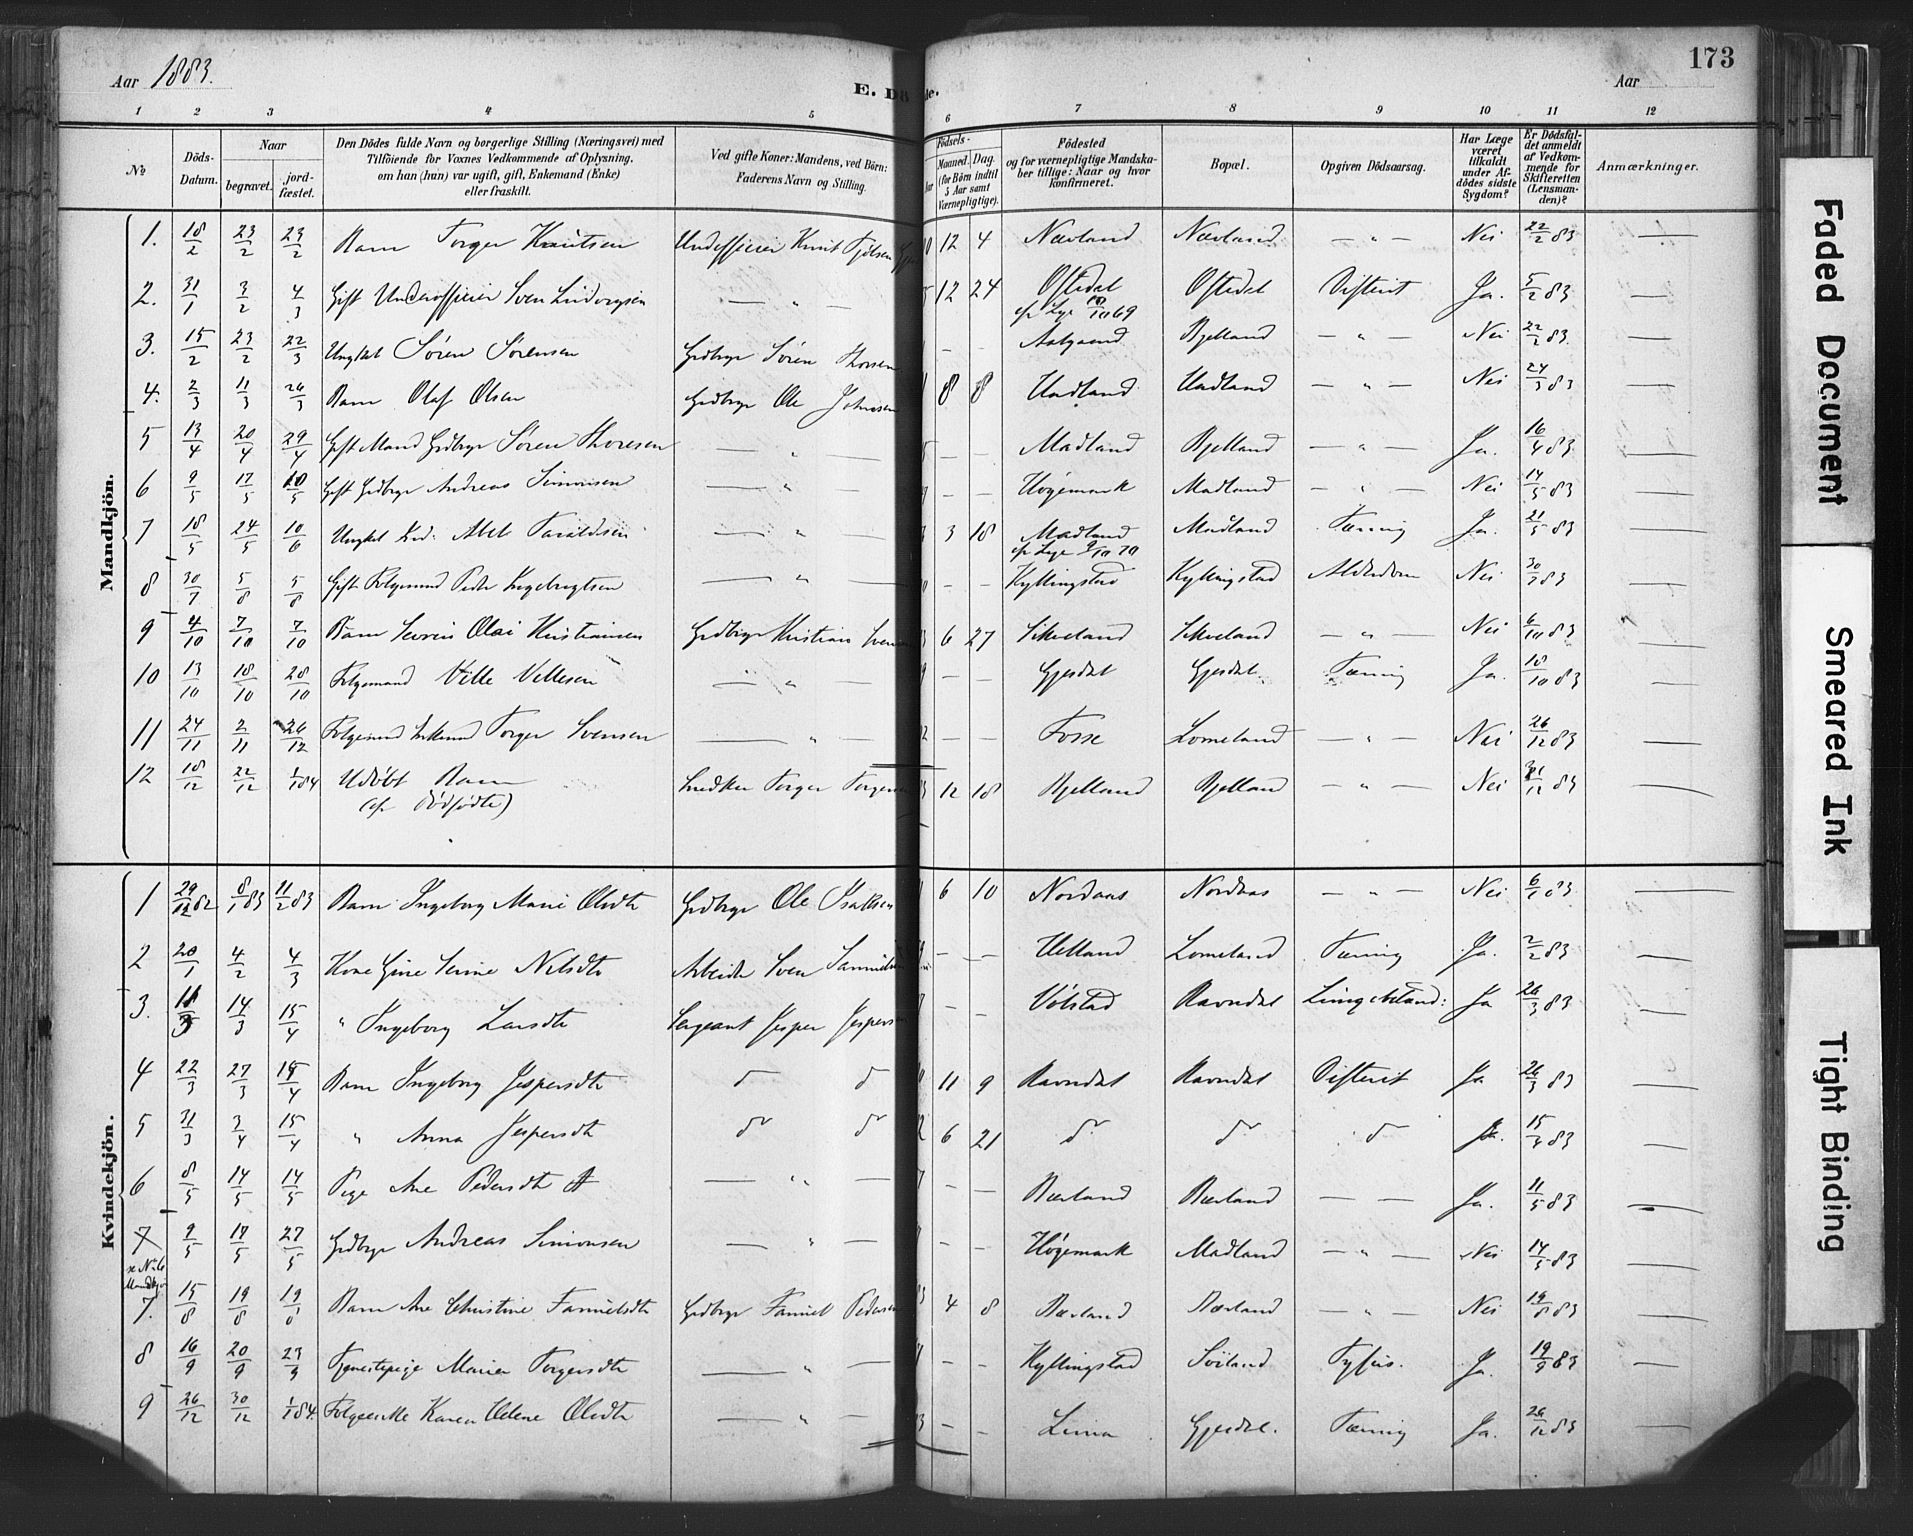 Aar 1883.
E. Dö
de.
Aar
173
1 2 3 4 5 6 7 8 9 10 11 12
No
Döds-Datum.
Naar
begravet.
jord-fæstet.
Den Dödes fulde Navn og borgerlige Stilling (Næringsvei) med
Tilföiende for Voxnes Vedkommende af Oplysning,
om han (han) var ugift, gift, Enkemand (Enke)
eller fraskilt.
Ved gifte Koner: Mandens, ved Börn:
Faderens Navn og Stilling.
Födsels-
Maaned. Dag.
(for Börn indtil
5 Aar samt
Værnepligtige).
Födested
og for værnepligtige Mandska-
ber tillige: Naar og hvor
konfirmeret.
Bopæl.
Opgiven Dödsaarsag.
Har Læge
været
tilkaldt
under Af-
dödes sidste
Sygdom?
Er Dödsfal-
det anmeldt
af Vedkom-
mende for
Skifteretten
(Lensman-
den)?
Anmærkninger.
Mandkjön.
1. 18/2 23/2 23/2 Barn Torger Knutsen Underofficier Knut Tjölsen 12 4 Nævland Nævland — " — Nei 22/2 83
2. 31/1 3/2 4/3 Gift Underofficier Sven Ludvigsen — " — 12 24 Oftedal Oftedal Difterit Ja. 5/2 83
cfr Lye 10/10 69
3. 15/2 23/2 22/3 Ungkal Søren Sørensen Grdbrgr Søren Thorsen — Aalgaard Bjelland — " — Nei 22/2 83.
4. 2/3 11/3 26/3 Barn Olaf Olsen Grdbrgr Ole Johnsen 8 8 Uadland Uadland — " — Nei 24/3 83
5 13/4 20/4 29/4 Gift Mand Grdbrgr Søren Thoresen — " — — — Madland Bjelland — " — Ja. 16/4 83
6 9/5 17/5 20/5 Gift Grdbrgr Andreas Simonsen — " — — — Høgemark Madland — " — Nei 14/5 83
7 18/5 24/5 10/6 Ungkal Abel Taraldsen — " — 3 18 Madland Madland Tæring Ja. 21/5 83
cfr Lye 9/10 70
8 30/7 5/8 5/8 Gift Folgemand Peder Ingebrigtsen — " — — — Kyllingstad Kyllingstad Alderdom Nei 30/7 83
9 4/10 7/10 7/10 Barn Severin Olai Kristiansen Grdbrgr Kristian Svens 6 27 Skurland Skurland — " — Nei 6/10 83
10 13/10 18/10 28/10 Folgemand Ville Villesen — " — — — Gjesdal Gjesdal. Tæring Ja. 18/10 83
11 24/11 2/11 26/12 Folgemand Enkemd Torger Svensen — " — — — Fosse Lomeland — " — Nei 26/12 83
12 18/12 22/12 1/1 84 Udöbt Barn Snedker Torger Torgers 12 18 Bjelland Bjelland — " — Nei 31/12 83
(cfr Dødfødte)
Kvindekjön.
1 29/12 82 8/1 83 11/2 83 Barn Ingeborg Marie Olsdtr Grdbrgr Ole Isaksen 6 10 Nordaas Nordaas — " — Nei 6/1 83
2 28/1 4/2 4/3 Kone Gine Serine Nilsdtr Arbeider Sven Samuels — — Helland Lomeland Tæring Ja. 2/2 83
3. 11/3 14/3 15/4 " Ingeborg Larsdtr Sergeant Jesper Jespersen — — Vølstad Ravndal Ja 26/3 83
4 22/3 27/3 15/4 Barn Ingeborg Jespersdtr do do 11 9 Ravndal Ravndal Difterit Ja 26/3 83
5 31/3 3/4 15/4 " Anna Jespersdtr do do 6 21 do do do Ja. 15/4 83
6 8/5 14/5 14/5 Pige Ane Pedersdtr — " — — — Bærland Bærland — — Ja. 11/5 83
7 9/5 17/5 27/5 Grdbrgr Andreas Simonsen — " — — — Høgemark Madland — " — Nei 14/5 83
se No 6
Mandkjøn
7. 15/8 19/8 19/8 Barn Ane Christine Tanielsdtr Grdbrgr Taniel Pedersen 4 8 Bærland Bærland — " — Nei 19/8 83
8 16/9 20/9 23/9 Tjenestepige Maria Torgersdtr — " — — — Kyllingstad Søiland Tyfus. Ja. 19/9 83
9 26/12 30/12 1/1 84. Folgeenke Karen Helene Olsdtr — " — — — Lima Gjesdal. Tæring Ja. 28/12 83
Faded Document
Smeared Ink
Tight Binding